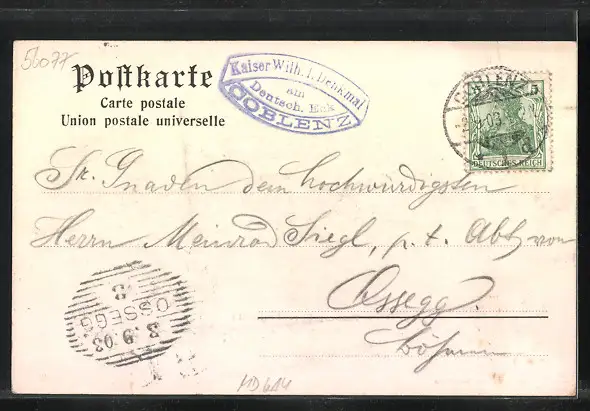 56077
Postkarte
Carte postale
Union postale universelle
Kaiser Wilh. I. Denkmal
am
Deutsch. Eck
COBLENZ
COBLENZ
5
03
DEUTSCHES REICH
Sr. Gnaden dem hochwürdigsten
Herrn Meinrad Siegl, p. t. Abt von
Ossegg.
Böhmen
OSSEGG
3.9.03